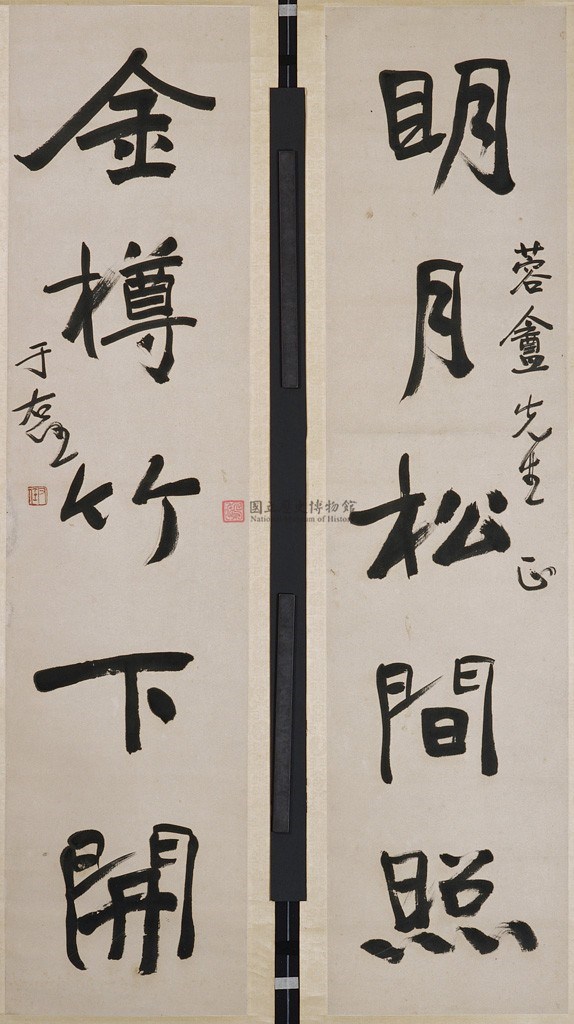 明月松間照
蓉盦先生正
金樽竹下開
于右任
國立歷史博物館
National Museum of History